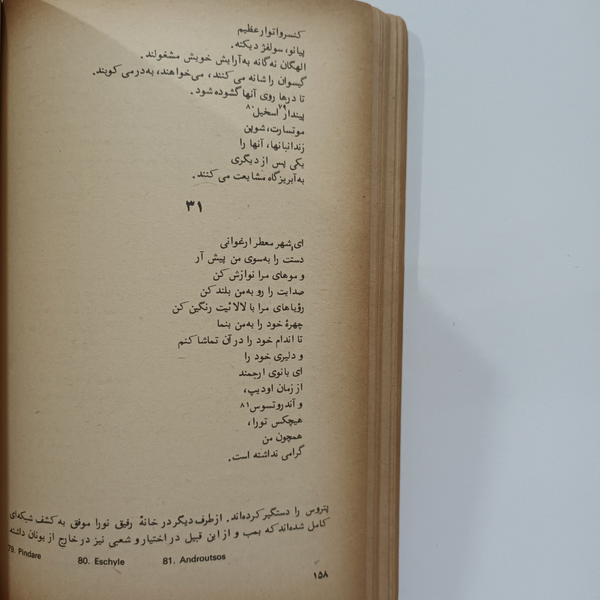 کنسرواتوار عظیم
پیانو، سولفژ دیکته.
الهگان نه گانه به آرایش خویش مشغولند.
گیسوان را شانه می کنند، می خواهند، به در می کوبند.
تا درها روی آنها گشوده شود.
پیندار۷۹ اسخیل۸۰
موتسارت، شوپن
زندانبانها، آنها را
یکی پس از دیگری
به آبریزگاه مشایعت می کنند.
۳۱
ای شهر معطر ارغوانی
دستت را به سوی من پیش آر
و موهای مرا نوازش کن
صدایت را رو به من بلند کن
رؤیاهای مرا با لالائیت رنگین کن
چهرهٔ خود را به من بنما
تا اندام خود را در آن تماشا کنم
و دلیری خود را
ای بانوی ارجمند
از زمان اودیپ،
و آندروتسوس۸۱
هیچکس تورا،
همچون من
گرامی نداشته است.
پتروس را دستگیر کرده اند. از طرف دیگر در خانهٔ رفیق نورا موفق به کشف شبکه ای
کامل شده اند که بمب و از این قبیل در اختیار و شعبی نیز در خارج از یونان داشته
79. Pindare 80. Eschyle 81. Androutsos
۱۵۸